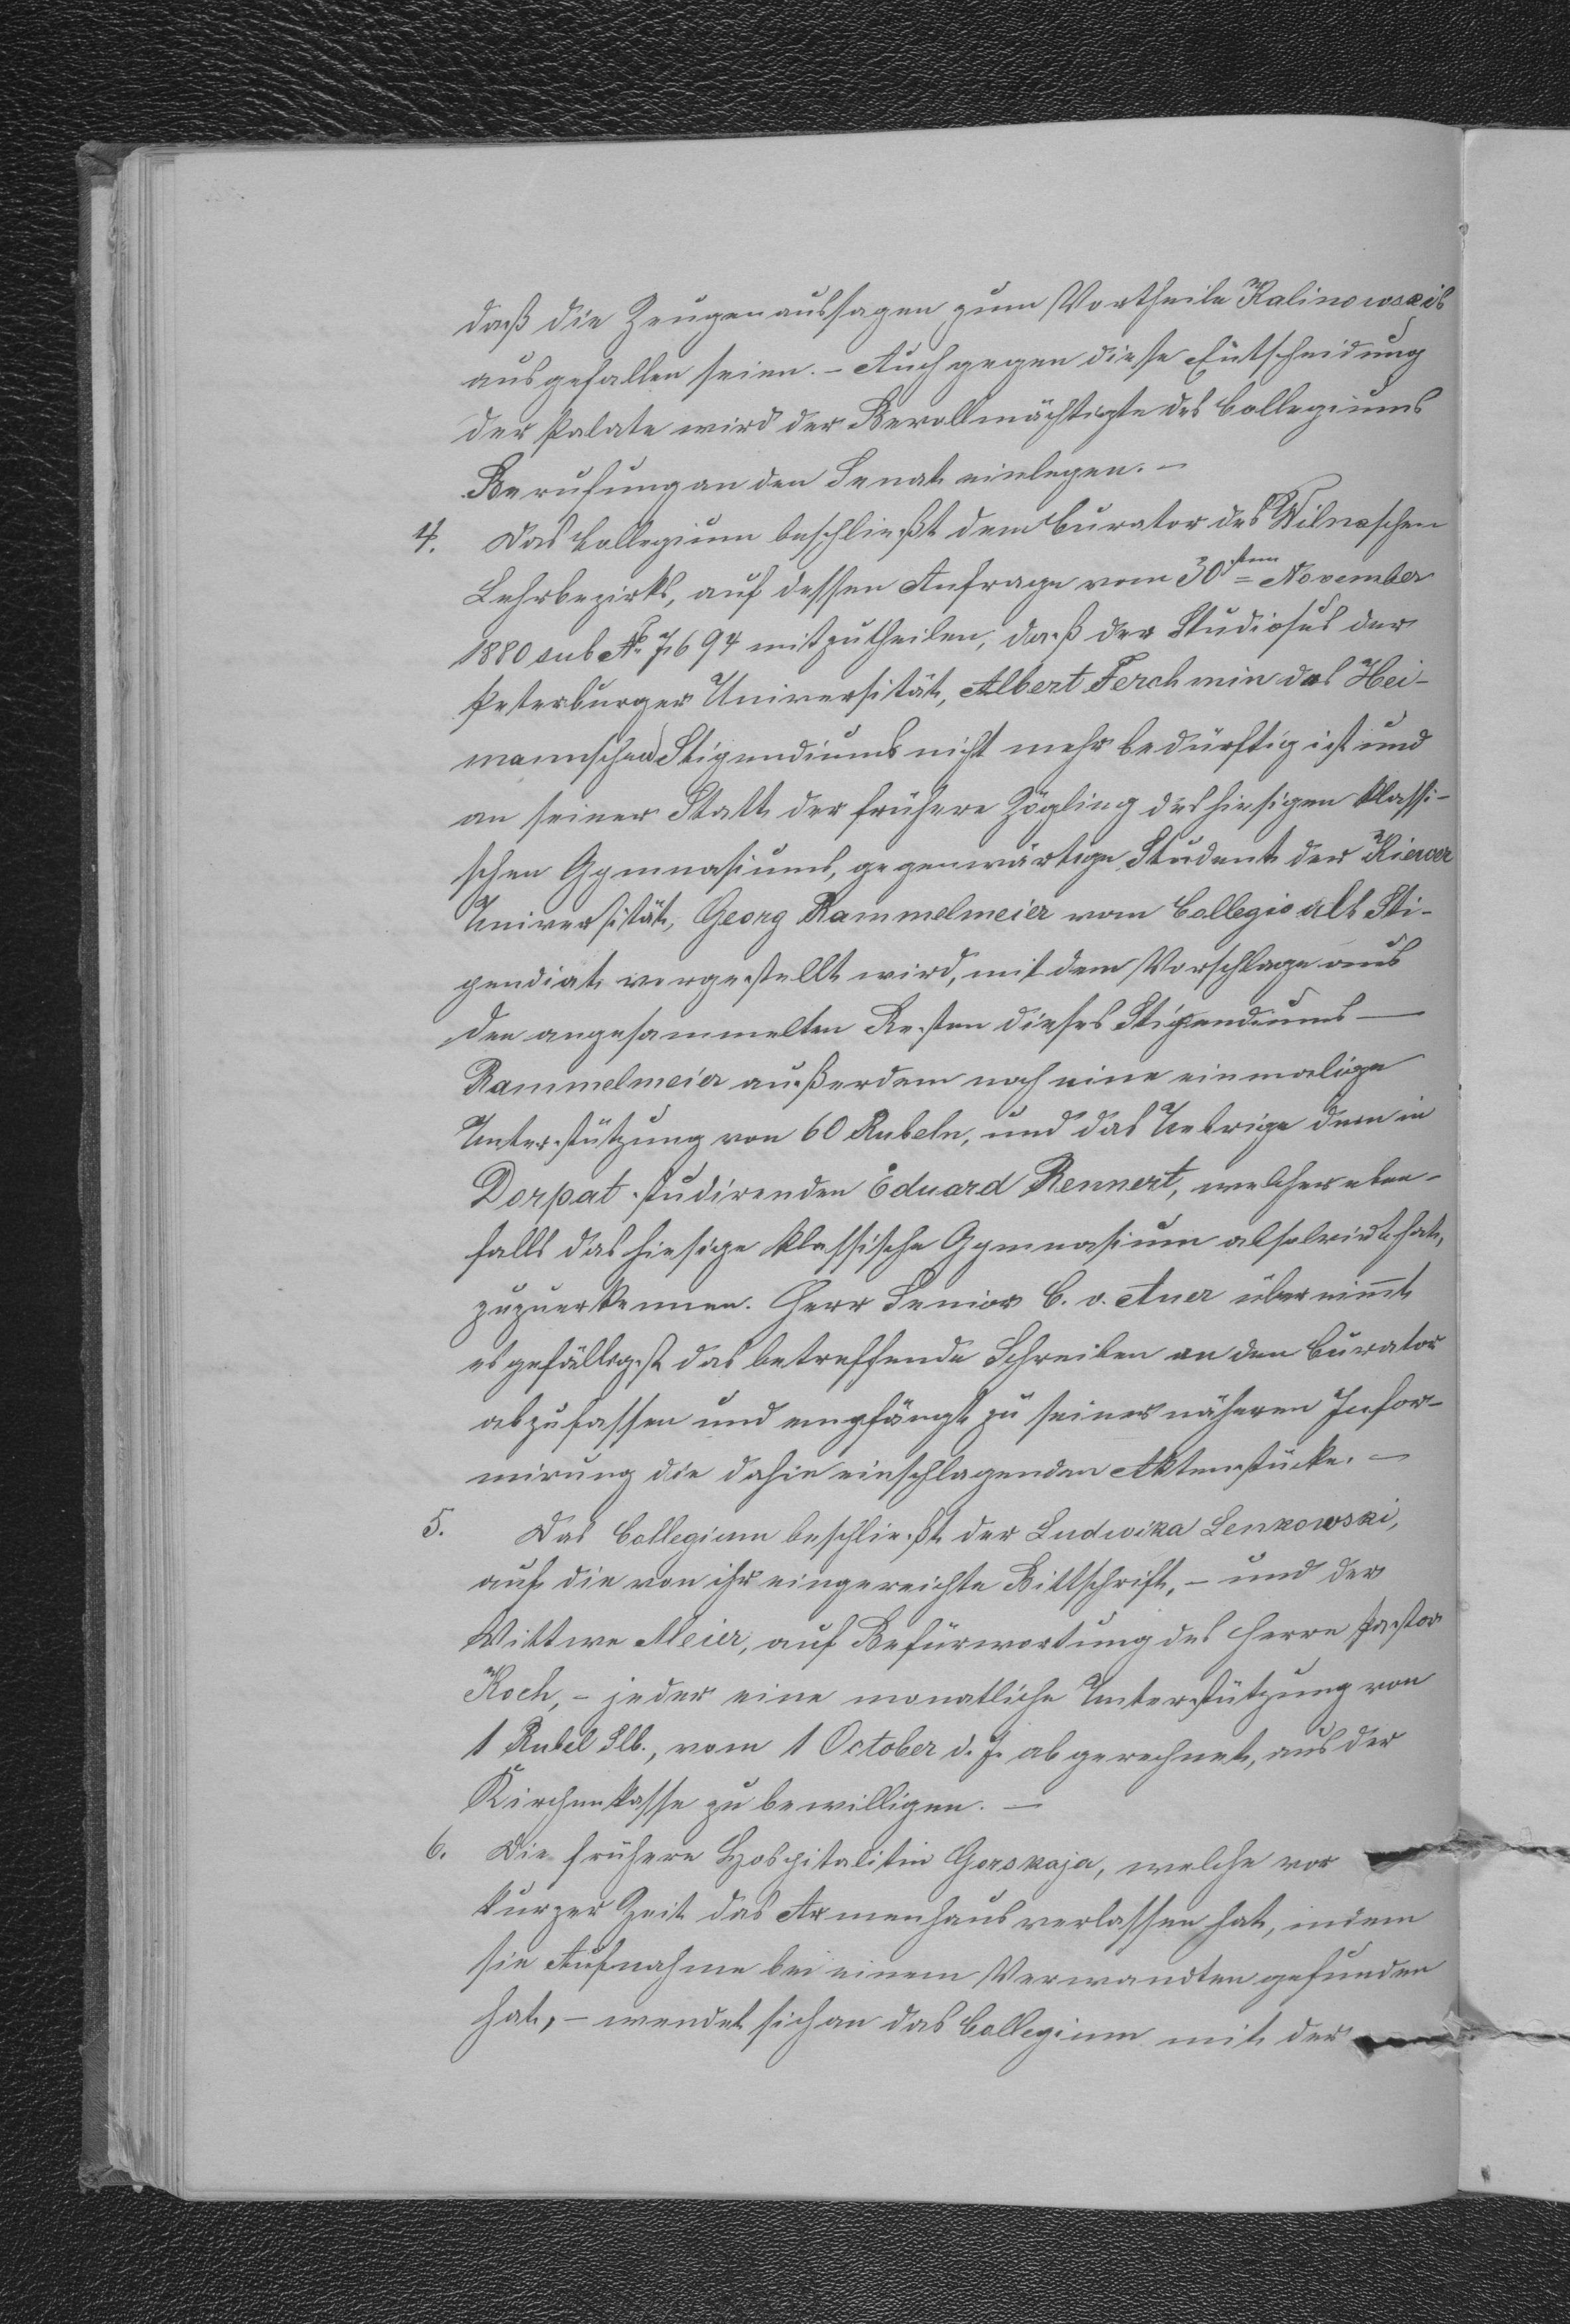 daß die Zeugenaussagen zum Vortheile Kalinowski's
ausgefallen seien. – Auch gegen diese Entscheidung
der Palate wird der Bevollmächtigte des Collegiums
Berufung an den Senat einlegen. –
4. Das Collegium beschließt dem Curator des Wilnaschen
Lehrbezirks, auf dessen Anfrage vom 30stem November
1880 sub № 7694 mitzutheilen, daß der Studiosus der
Petersburger Universität, Albert Ferchmin des Hei-
mannschen Stipendiums nicht mehr bedürftig ist und
an seiner Statt der frühere Zögling des hiesigen klassi-
schen Gymnasiums, gegenwärtige Student der Kiewer
Universität, Georg Rammelmeier vom Collegio als Sti-
pendiat vorgestellt wird, mit dem Vorschlage aus
den angesammelten Resten dieses Stipendiums —
Rammelmeier außerdem noch eine einmalige
Unterstützung von 60 Rubeln, und das Uebrige dem in
Dorpat studirenden Eduard Rennert, welcher eben-
falls das hiesige klassische Gymnasium absolvirt hat,
zuzuerkennen. Herr Senior C. v. Auer übernimmt
es gefälligst das betreffende Schreiben an den Curator
abzufassen und empfängt zu seiner näheren Infor-
mirung die dahin einschlagenden Aktenstücke. —
5. Das Collegium beschließt der Ludwika Lenkowski,
auf die von ihr eingereichte Bittschrift, – und der
Wittwe Meier, auf Befürwortung des Herrn Pastor
Koch, – jeder eine monatliche Unterstützung von
1 Rubel Slb., vom 1 October d. J. ab gerechnet, aus der
Kirchenkasse zu bewilligen. —
6. Die frühere Hospitalitin Gorskaja, welche vor
kurzer Zeit das Armenhaus verlassen hat, indem
sie Aufnahme bei einem Verwandten gefunden
hat, – wendet sich an das Collegium mit der